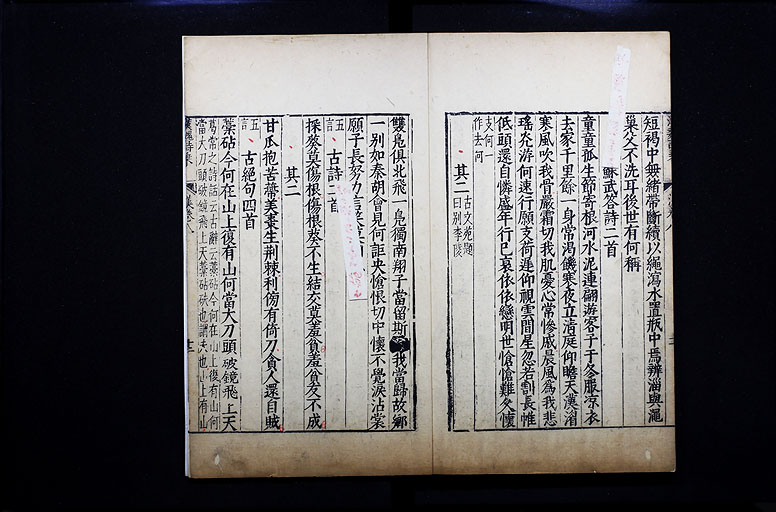 短褐中無緒帶斷續以繩瀉水置瓶中焉辨淄與澠
巢父不洗耳後世有何稱
蘇武答詩二首
童童孤生節寄根河水泥連翩遊客子于冬服凉衣
去家千里餘一身常渴饑寒夜立清庭仰瞻天漢湄
寒風吹我骨嚴霜切我肌憂心常慘戚晨風為我悲
瑤光游何速行願支荷遲仰視雲間星忽若割長帷
低頭還自憐盛年行已衰依依戀明世愴愴難久懷
支何一
作去何
其二
古文苑題
曰別李陵
雙鳧俱北飛一鳧獨南翔子當留斯我當歸故鄉
一別如秦胡會見何詎央愴恨切中懷不覺淚沾裳
願子長努力言笑莫
五言
古詩二首
採葵莫傷根傷根葵不生結交莫羞貧羞貧交不成
其二
甘瓜抱苦蒂美棗生荆棘利傍有倚刀貪人還自賊
五言
古絕句四首
藁砧今何在山上復有山何當大刀頭破鏡飛上天
葛常之詩話云古辭云藁砧今何在山上復有山何
當大刀頭破鏡飛上天藁砧砆也謂夫也山上有山